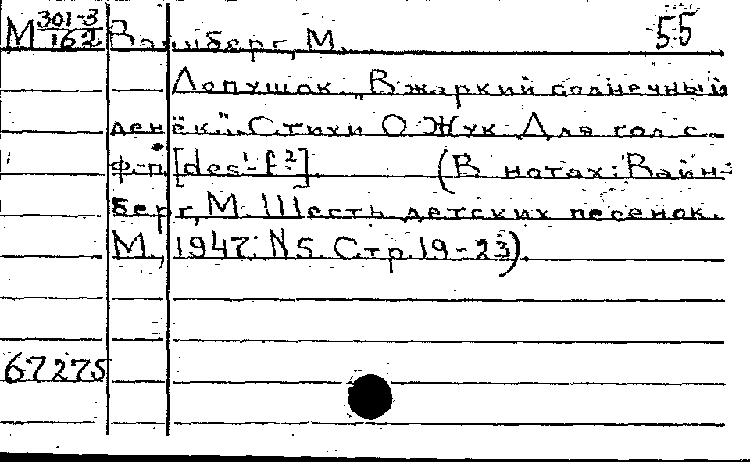 М 301-3/162 Вайнберг, М. 55
Лопушок. „В жаркий солнечный
денёк". Стихи О. Жук. Для гол. с
ф-п. [des¹-f²]. (В нотах: Вайн-
берг, М. Шесть детских песенок.
М., 1947. N5. Стр. 19-23).
67275